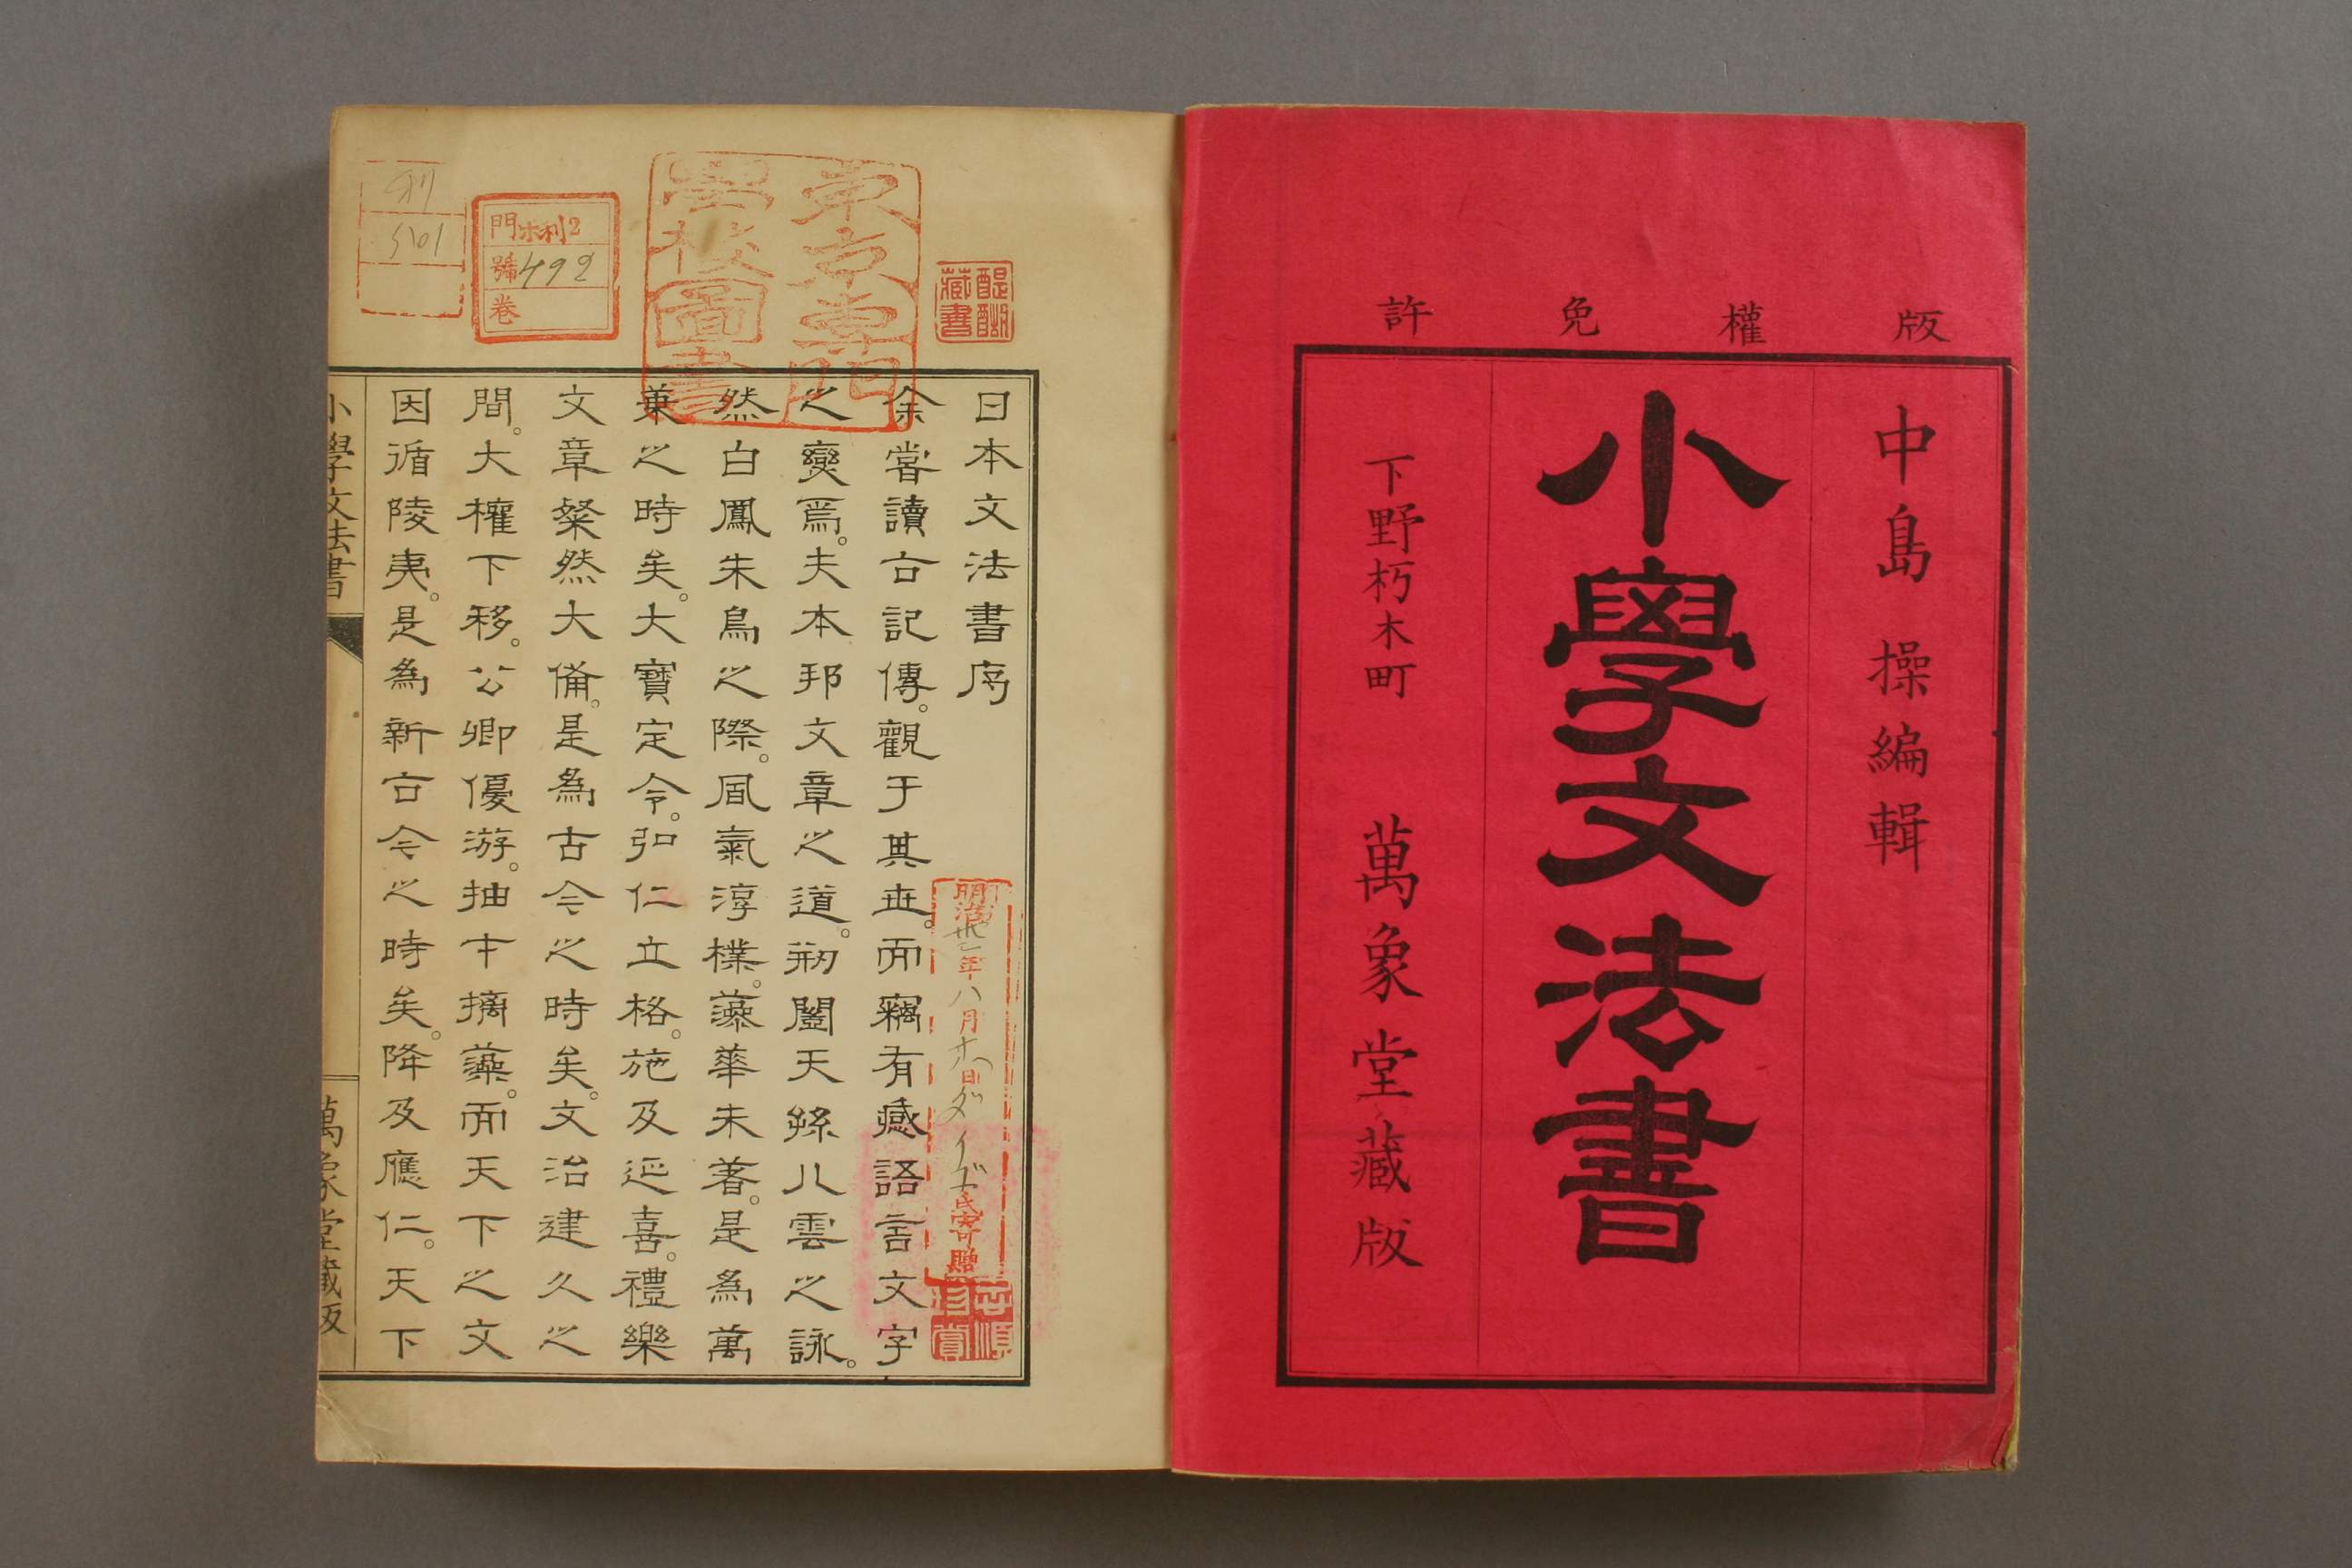 版權免許
中島 操編輯
小學文法書
下野栃木町 萬象堂藏版
日本文法書序
余嘗讀古記傳。觀于其世。而竊有感語言文字
之變焉。夫本邦文章之道。剏闔天孫八雲之詠。
然白鳳朱鳥之際。風氣淳樸。藻華未著。是為萬
葉之時矣。大寶定令。弘仁立格。施及延喜。禮樂
文章粲然大備。是為古今之時矣。文治建久之
間。大權下移。公卿優游。抽中摘藻。而天下之文
因循陵夷。是為新古今之時矣。降及應仁。天下
小學文法書
萬象堂藏版
醍醐藏書
東京專門學校圖書
門 ホ利2
號 492
卷
明治 年八月 日 ダイズ氏寄贈